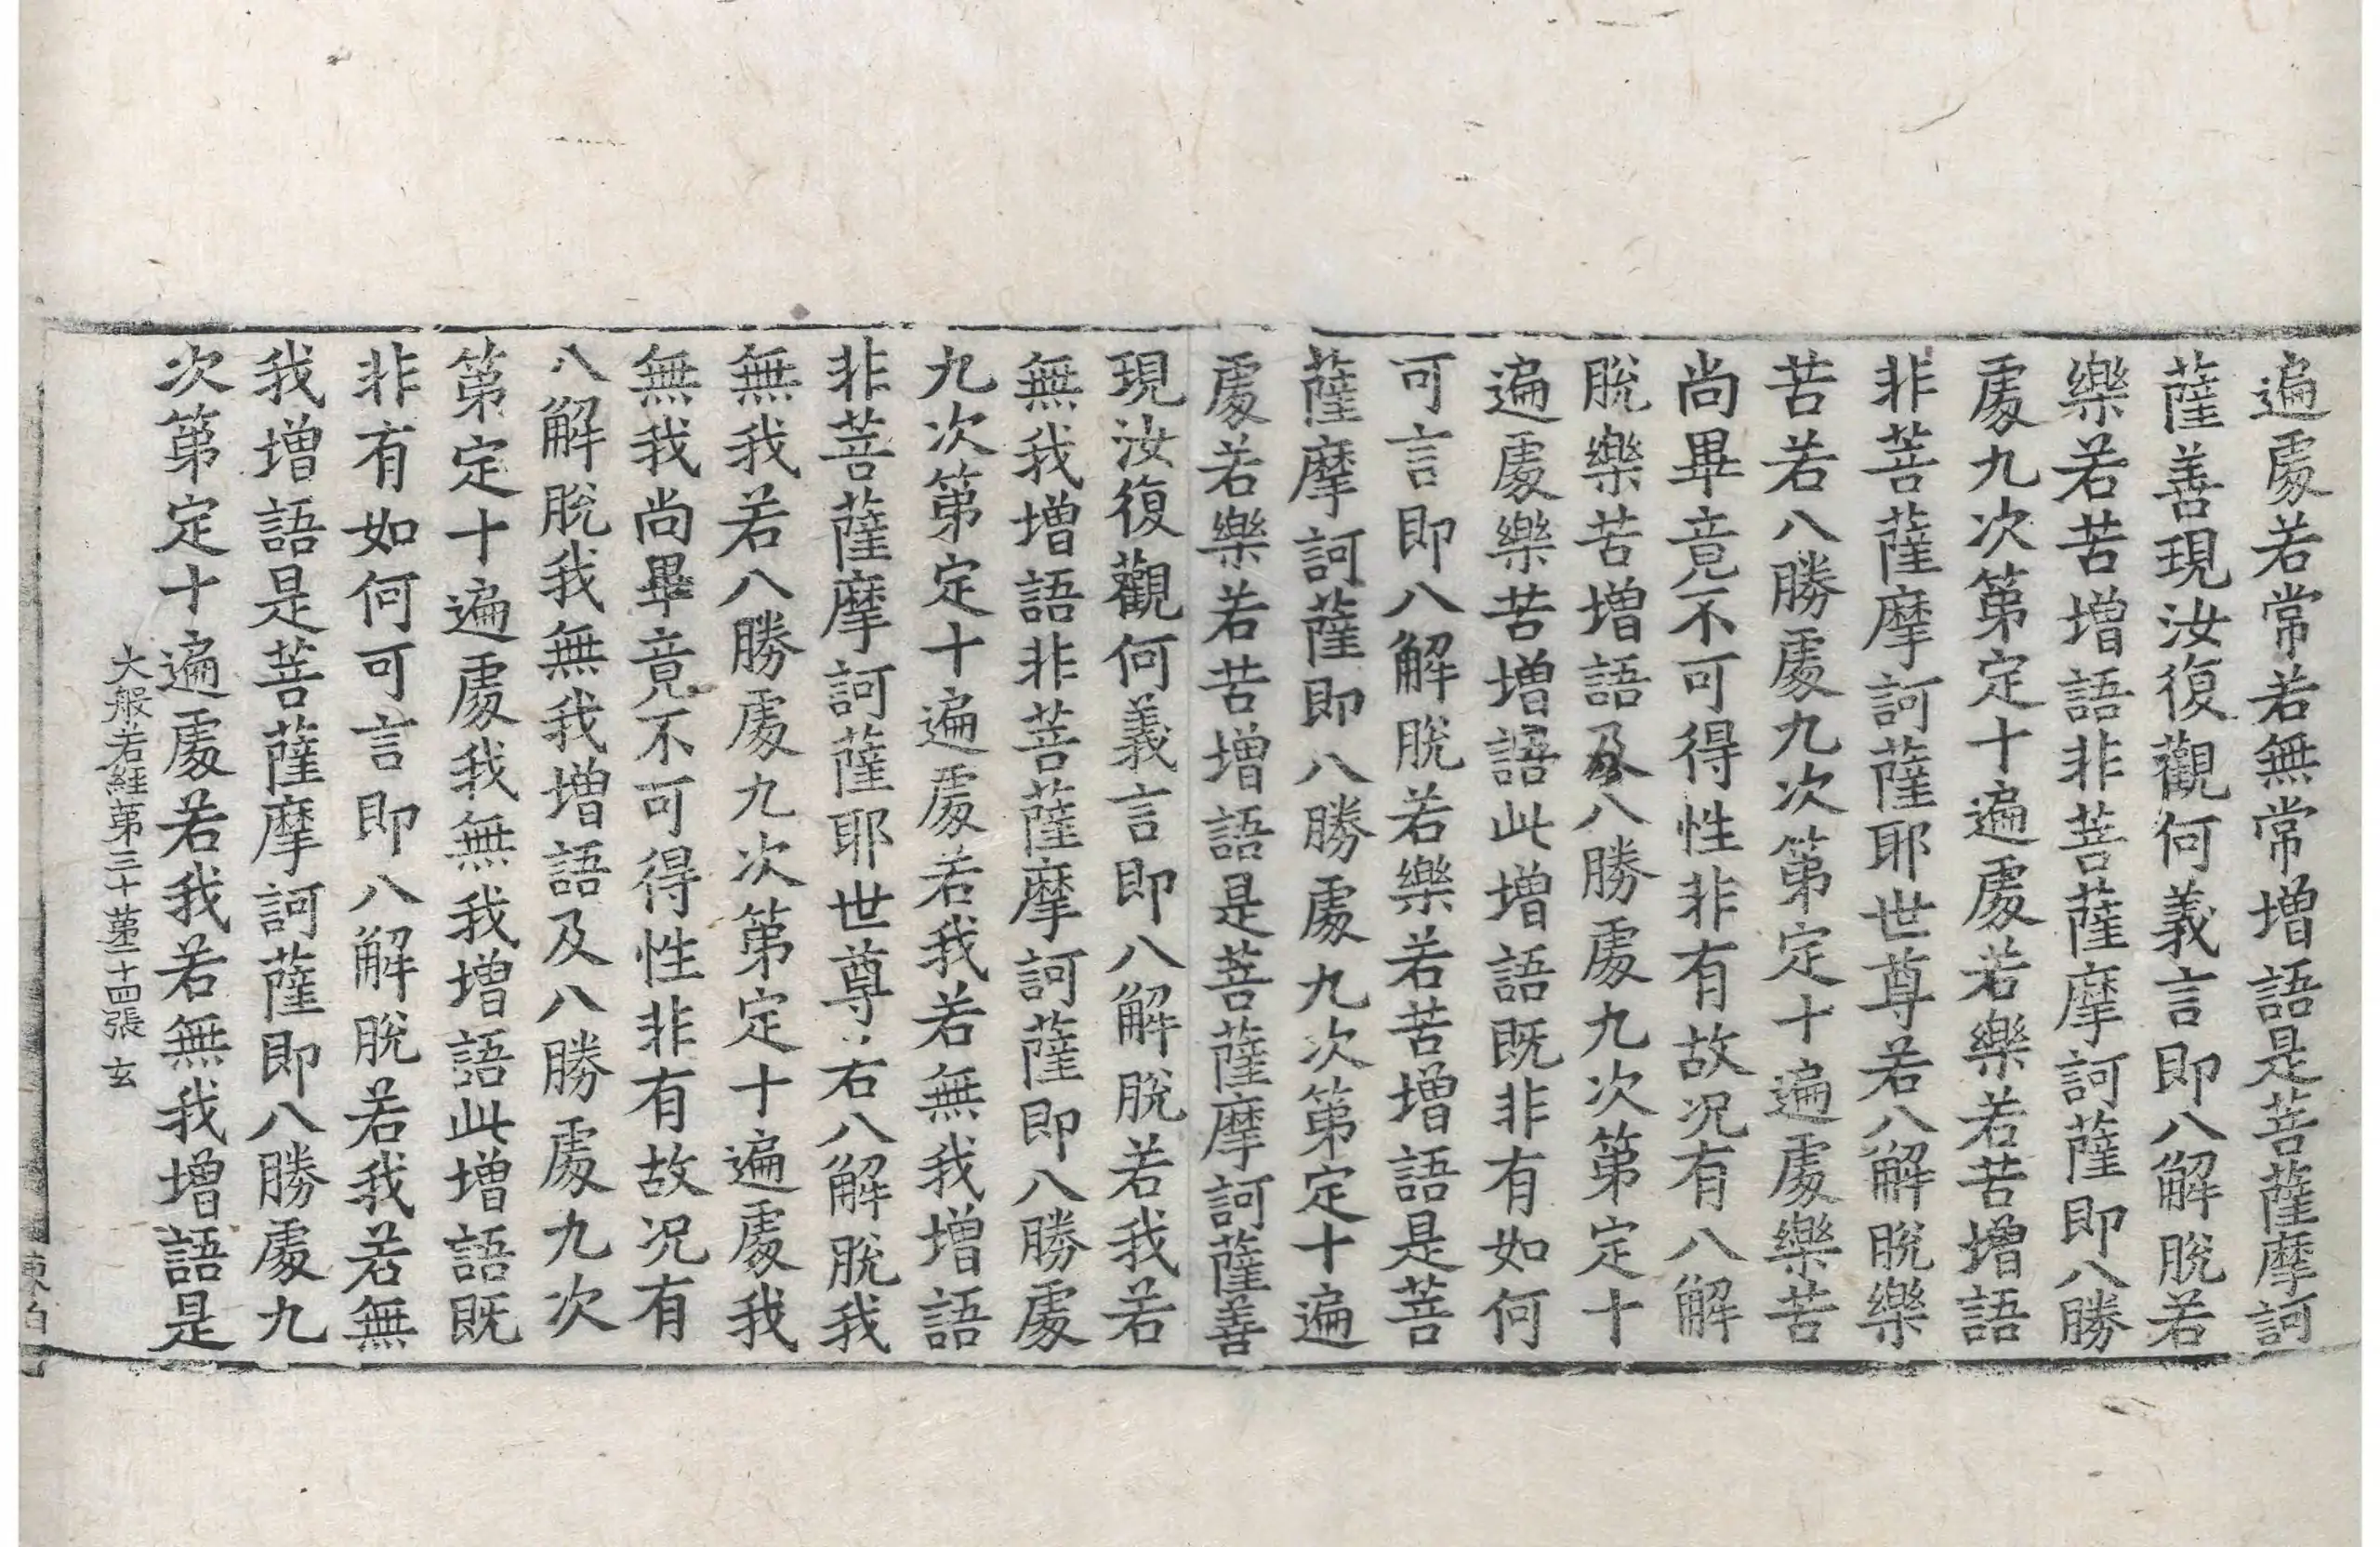 遍處若常若無常增語是菩薩摩訶
薩善現汝復觀何義言即八解脫若
樂若苦增語非菩薩摩訶薩即八勝
處九次第定十遍處若樂若苦增語
非菩薩摩訶薩耶世尊若八解脫樂
苦若八勝處九次第定十遍處樂苦
尚畢竟不可得性非有故況有八解
脫樂苦增語及八勝處九次第定十
遍處樂苦增語此增語既非有如何
可言即八解脫若樂若苦增語是菩
薩摩訶薩即八勝處九次第定十遍
處若樂若苦增語是菩薩摩訶薩善
現汝復觀何義言即八解脫若我若
無我增語非菩薩摩訶薩即八勝處
九次第定十遍處若我若無我增語
非菩薩摩訶薩耶世尊右八解脫我
無我若八勝處九次第定十遍處我
無我尚畢竟不可得性非有故況有
八解脫我無我增語及八勝處九次
第定十遍處我無我增語此增語既
非有如何可言即八解脫若我若無
我增語是菩薩摩訶薩即八勝處九
次第定十遍處若我若無我增語是
大般若經第三十 第二十四張 玄